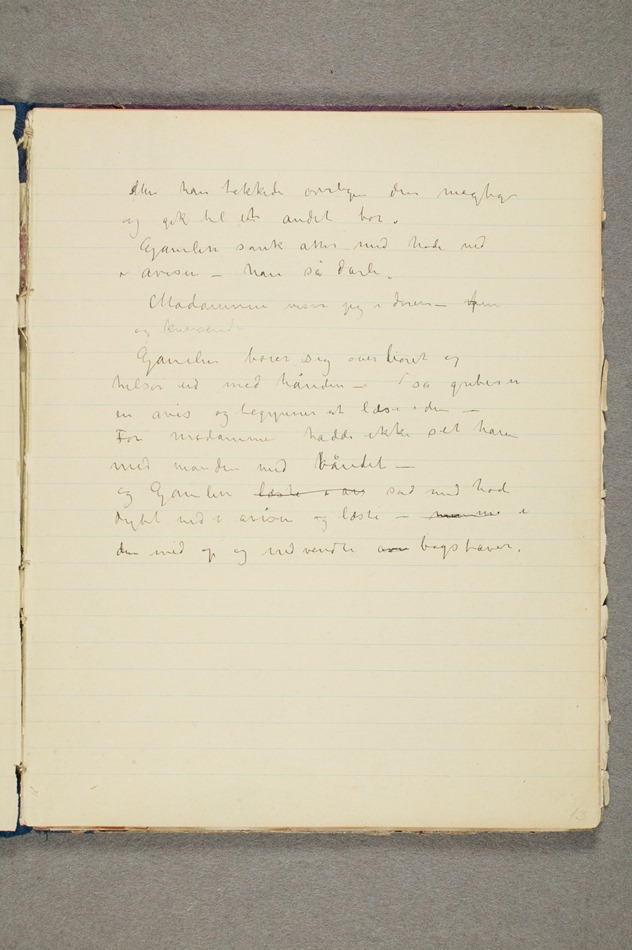 Men han takkede
og gik til et andet bor.
Gamlen sank atter med hode ned
i avisen – han så darli.
Madammen viser sig i doren –
og
Gamlen boier sig over boret og
hilser ud med hånden – så griber en
en avis og begynner at læse i den –
For madammen hadde ikke set ham
med manden med båndet –
og Gamlen læste i avis sad med hod
dybt ned i avisen og læste – i
den med op og ned vendte bogstaver.
13